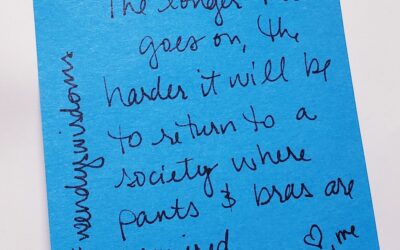 The longer
goes on, the
harder it will be
to return to a
society where
pants & bras are
♡, me
wendyswisdoms